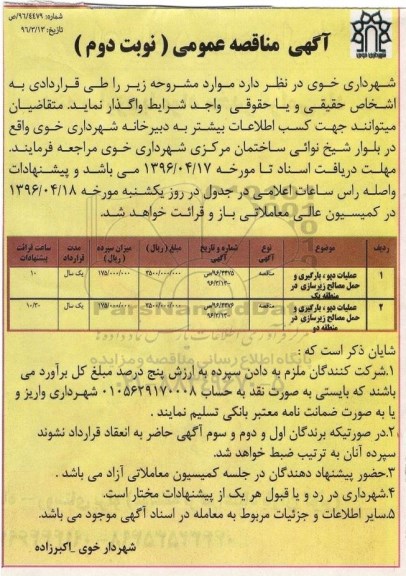 شماره: ۹۶/۴۴۷۹/ص
تاریخ: ۹۶/۳/۱۳
آگهی مناقصه عمومی ( نوبت دوم )
شهرداری خوی در نظر دارد موارد مشروحه زیر را طی قراردادی به
اشخاص حقیقی و یا حقوقی واجد شرایط واگذار نماید. متقاضیان
میتوانند جهت کسب اطلاعات بیشتر به دبیرخانه شهرداری خوی واقع
در بلوار شیخ نوائی ساختمان مرکزی شهرداری خوی مراجعه فرمایند.
مهلت دریافت اسناد تا مورخه ۱۳۹۶/۰۴/۱۷ می باشد و پیشنهادات
واصله راس ساعات اعلامی در جدول در روز یکشنبه مورخه ۱۳۹۶/۰۴/۱۸
در کمیسیون عالی معاملاتی باز و قرائت خواهد شد.
ردیف موضوع نوع آگهی شماره و تاریخ آگهی مبلغ ( ریال ) میزان سپرده ( ریال ) مدت قرارداد ساعت قرائت پیشنهادات
۱ عملیات دپو ، بارگیری و حمل مصالح زیرسازی در منطقه یک مناقصه ۹۶/۴۴۷۵/ص ۹۶/۳/۱۳ ۳۵۰۰/۰۰۰/۰۰۰ ۱۷۵/۰۰۰/۰۰۰ یک سال ۱۰
۲ عملیات دپو ، بارگیری و حمل مصالح زیرسازی در منطقه دو مناقصه ۹۶/۳/۱۳ ۳۵۰۰/۰۰۰/۰۰۰ ۱۷۵/۰۰۰/۰۰۰ یک سال ۱۰/۳۰
ParsNamadData
پایگاه اطلاع رسانی مناقصه و مزایده
شایان ذکر است که :
۱.شرکت کنندگان ملزم به دادن سپرده به ارزش پنج درصد مبلغ کل برآورد می
باشند که بایستی به صورت نقد به حساب ۰۱۰۵۶۲۹۱۷۰۰۰۸ شهرداری واریز و
یا به صورت ضمانت نامه معتبر بانکی تسلیم نمایند .
۲.در صورتیکه برندگان اول و دوم و سوم آگهی حاضر به انعقاد قرارداد نشوند
سپرده آنان به ترتیب ضبط خواهد شد.
۳.حضور پیشنهاد دهندگان در جلسه کمیسیون معاملاتی آزاد می باشد .
۴.شهرداری در رد و یا قبول هر یک از پیشنهادات مختار است.
۵.سایر اطلاعات و جزئیات مربوط به معامله در اسناد آگهی موجود می باشد.
شهردار خوی _اکبرزاده